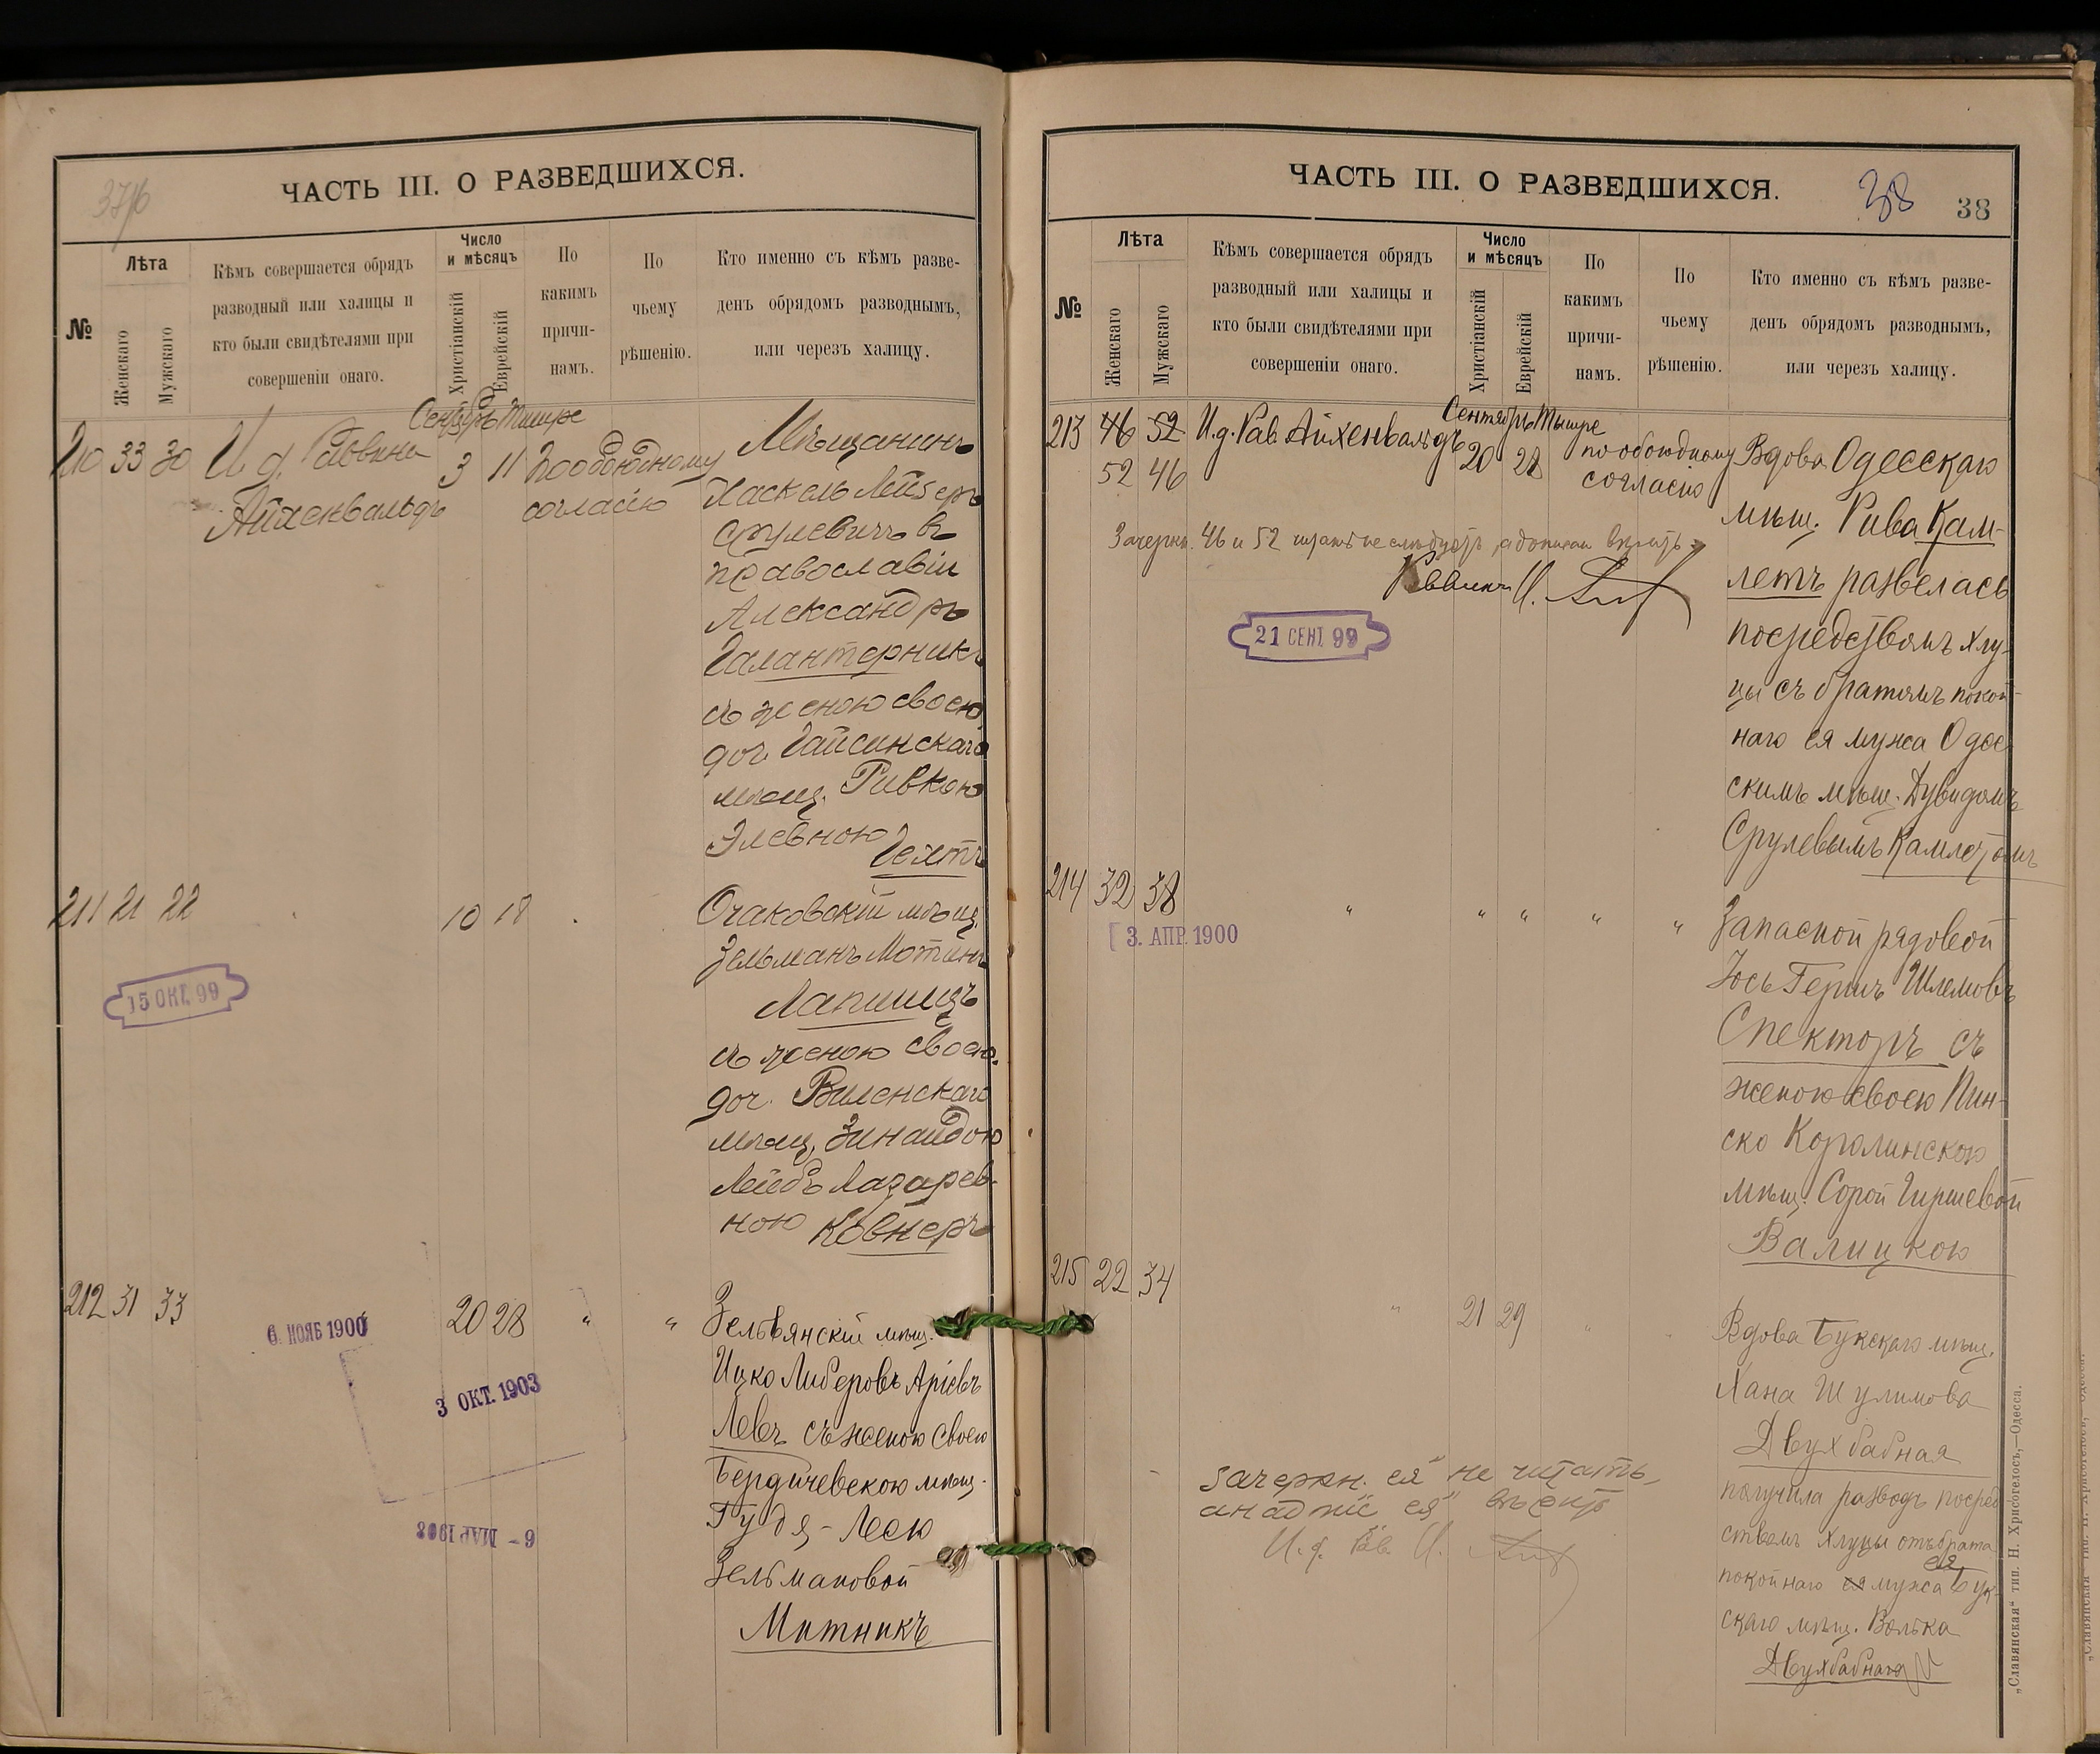 37об
ЧАСТЬ III. О РАЗВЕДШИХСЯ.
№
Лѣта
Женскаго
Мужскаго
Кѣмъ совершается обрядъ
разводный или халицы и
кто были свидѣтелями при
совершеніи онаго.
Число
и мѣсяцъ
Христіанскій
Еврейскій
По
какимъ
причи-
намъ.
По
чьему
рѣшенію.
Кто именно съ кѣмъ разве-
денъ обрядомъ разводнымъ,
или черезъ халицу.
Сентябрь Тишре
210 33 30 И. д. Раввина 3 11 По обоюдному Мѣщанинъ
Айхенвальдъ согласію Хаскель Лейзеръ
Срулевичъ въ
православіи
Александръ
Галантерникъ
съ женою своею
доч. Гайсинскаго
мѣщ. Ривкою
Элевною
Гехтъ
211 21 22 10 18 Очаковскій мѣщ.
Зельманъ Мотинъ
15 ОКТ. 99
Лапшицъ
съ женою своею
доч. Виленскаго
мѣщ. Зинаидою
Лейбъ Лазарев-
ною Ковнеръ
212 31 33 20 28 " " Зельвянскій мѣщ.
6. НОЯБ 1900
Ицко Либеровъ Аріевъ
3 ОКТ. 1903
Левъ съ женою своею
Бердичевскою мѣщ.
Гудя-Лею
6 - МАР 1908
Зельмановой
Митникъ
ЧАСТЬ III. О РАЗВЕДШИХСЯ.
38
38
№
Лѣта
Женскаго
Мужскаго
Кѣмъ совершается обрядъ
разводный или халицы и
кто были свидѣтелями при
совершеніи онаго.
Число
и мѣсяцъ
Христіанскій
Еврейскій
По
какимъ
причи-
намъ.
По
чьему
рѣшенію.
Кто именно съ кѣмъ разве-
денъ обрядомъ разводнымъ,
или черезъ халицу.
Сентябрь Тишре
213 46 52 И. д. Рав. Айхенвальдъ 20 28 по обоюдному Вдова Одесскаго
52 46 согласію
мѣщ. Рива Кам-
Зачеркн. 46 и 52 читать не слѣдуетъ, а
летъ развелась
Раввинъ И.
посредствомъ хлу-
21 СЕНТ. 99
цы съ братомъ покой-
наго ея мужа Одес-
скимъ мѣщ. Дувидомъ
Срулевымъ Камлетомъ
214 32 38 " " " " " Запасной рядовой
3. АПР. 1900
Юсь Гершъ Шлемовъ
Спекторъ съ
женою своею Пин-
ско Королинскою
мѣщ. Сорой Гиршевой
Валицкою
215 22 34 " 21 29 " Вдова Букскаго мѣщ.
Хана Шулимова
Двухбабная
зачеркн. ея не читать,
получила разводъ посред
а надпис ея вѣрить
ствомъ хлуцы отъ брата
И. д. Рав. И.
ея
покойнаго ея мужа Бук-
скаго мѣщ. Волька
Двухбабнаго
„Славянская“ тип. Н. Хрисогелосъ,—Одесса.